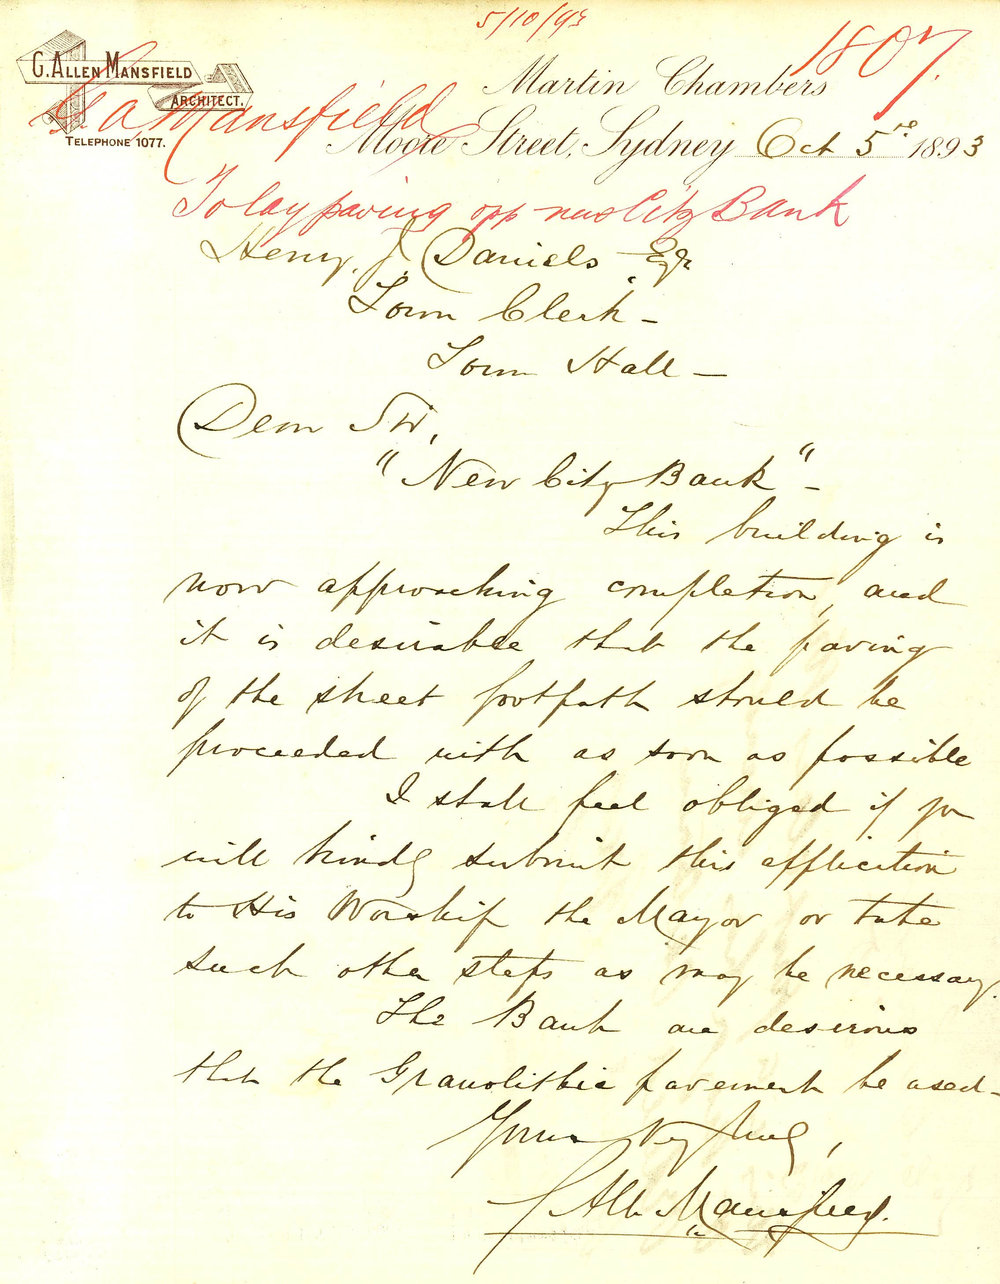 5/10/93
1807
G. ALLEN MANSFIELD
ARCHITECT.
TELEPHONE 1077.
G A Mansfield
Martin Chambers
Moore Street, Sydney Oct 5th 1893
To lay paving opp new City Bank
Henry J. Daniels Esqr
Town Clerk –
Town Hall –
Dear Sir,
"New City Bank" –
This building is
now approaching completion, and
it is desirable that the paving
of the street footpath should be
proceeded with as soon as possible
I shall feel obliged if you
will kindly submit this application
to His Worship the Mayor or take
such other steps as may be necessary.
The Bank are desirous
that the Granolithic pavement be used –
Yours very truly,
G Allen Mansfield.